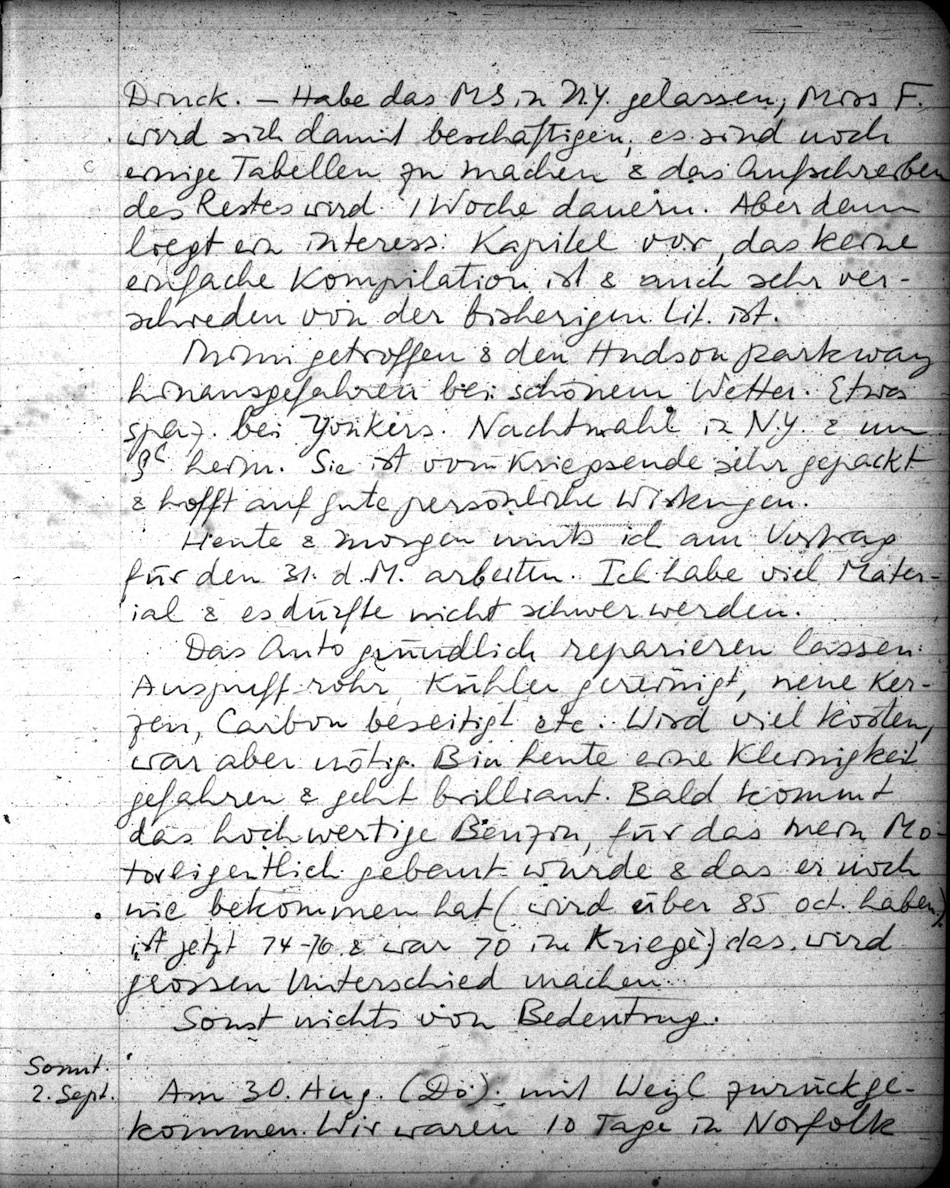 Druck. – Habe das MS in N.Y. gelassen, Miss F.
wird sich damit beschäftigen, es sind noch
einige Tabellen zu machen & das Aufschreiben
des Restes wird 1 Woche dauern. Aber dann
liegt ein interess. Kapitel vor, das keine
einfache Kompilation ist & auch sehr ver-
schieden von der bisherigen Lit. ist.
Mimi getroffen & den Hudson parkway
hinausgefahren bei schönem Wetter. Etwas
spaz. bei Yonkers. Nachtmahl in N.Y. & um
heim. Sie ist vom Kriegsende sehr gepackt
& hofft auf gute persönliche Wirkungen.
Heute & morgen muss ich am Vortrag
für den 31. d.M. arbeiten. Ich habe viel Mater-
ial & es dürfte nicht schwer werden.
Das Auto gründlich reparieren lassen:
Auspuff-rohr, Kühler gereinigt, neue Ker-
zen, Carbon beseitigt etc. Wird viel kosten,
war aber nötig. Bin heute eine Kleinigkeit
gefahren & geht brilliant. Bald kommt
das hochwertige Benzin, für das mein Mo-
tor eigentlich gebaut wurde & das er noch
nie bekommen hat (wird über 85 oct. haben,
ist jetzt 74-76 & war 70 im Kriege) das wird
grossen Unterschied machen.
Sonst nichts von Bedeutung.
Sonnt.
2. Sept. Am 30. Aug. (Do). mit Weyl zurückge-
kommen. Wir waren 10 Tage in Norfolk